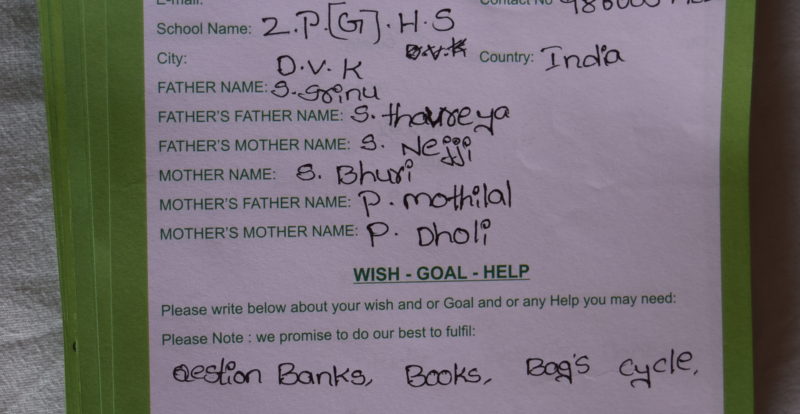 E-mail: Contact No
School Name: Z.P.[G].H.S
City: D.V.K Country: India
FATHER NAME: S. Srinu
FATHER'S FATHER NAME: S.
FATHER'S MOTHER NAME: S. Nejji
MOTHER NAME: S. Bhuri
MOTHER'S FATHER NAME: P. mothilal
MOTHER'S MOTHER NAME: P. Dholi
WISH - GOAL - HELP
Please write below about your wish and or Goal and or any Help you may need:
Please Note : we promise to do our best to fulfil:
Qestion Banks, Books, Bag's cycle,